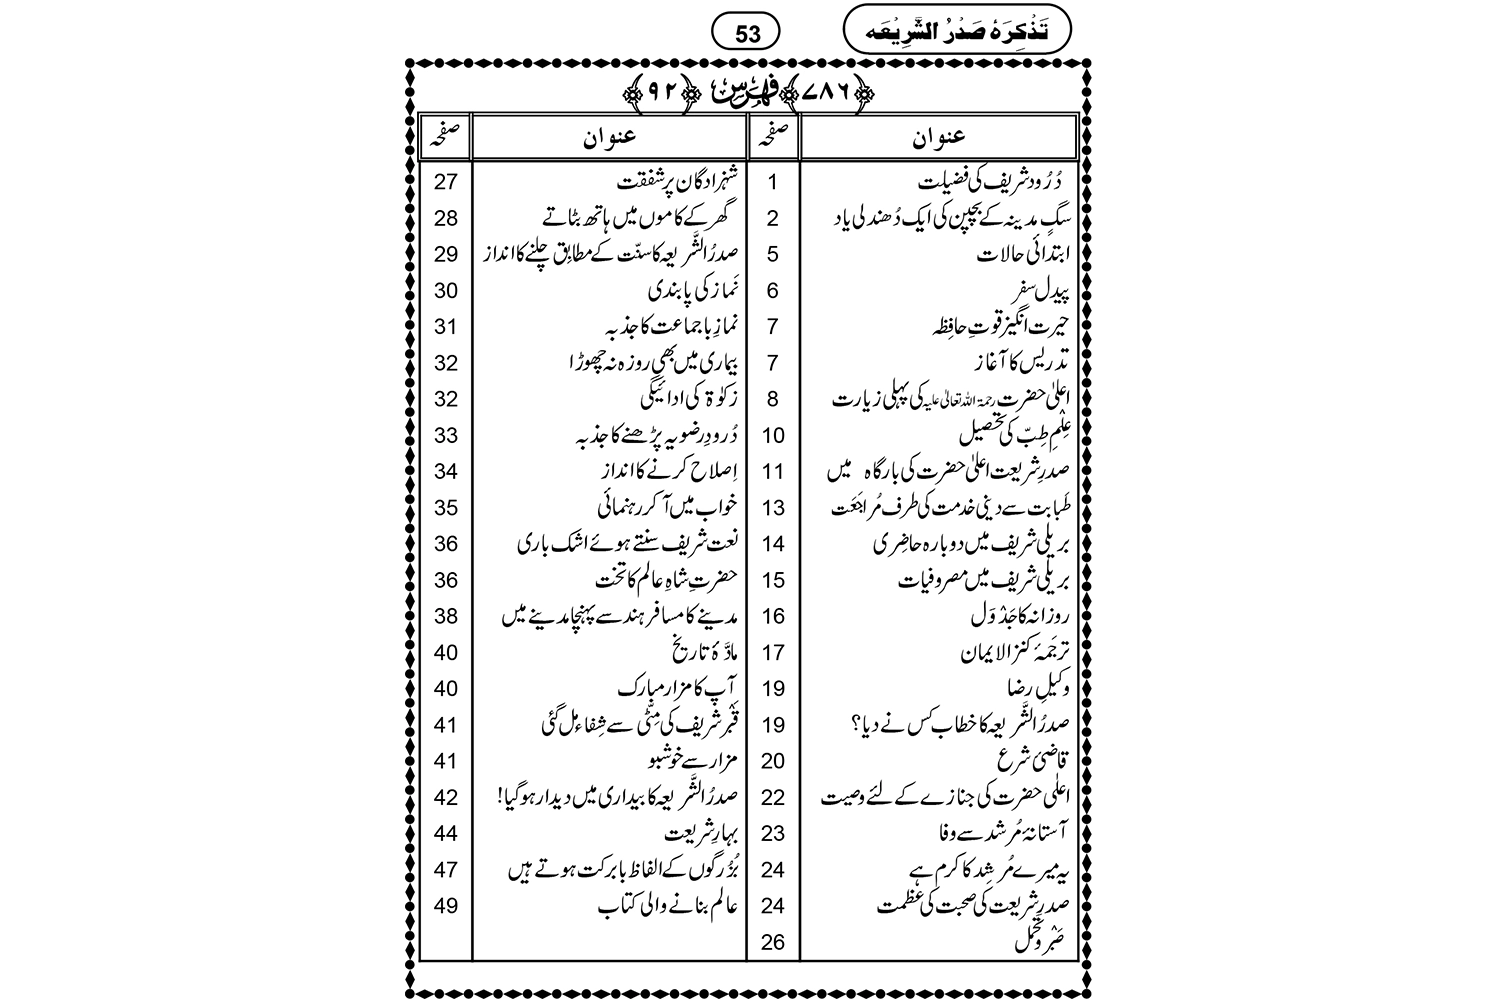 تَذْکِرَۂ صَدْرُ الشَّرِیْعَہ 53
﴿۷۸۶﴾ فہرس ﴿۹۲﴾
عنوان صفحہ عنوان صفحہ
دُرُود شریف کی فضیلت 1 شہزادگان پر شفقت 27
سگِ مدینہ کے بچپن کی ایک دُھندلی یاد 2 گھر کے کاموں میں ہاتھ بٹاتے 28
ابتدائی حالات 5 صدرُ الشَّریعہ کا سنّت کے مطابق چلنے کا انداز 29
پیدل سفر 6 نَماز کی پابندی 30
حیرت انگیز قوتِ حافِظہ 7 نمازِ باجماعت کا جذبہ 31
تدریس کا آغاز 7 بیماری میں بھی روزہ نہ چھوڑا 32
اعلیٰ حضرت رحمۃ اللہ تعالیٰ علیہ کی پہلی زیارت 8 زکوٰۃ کی ادائیگی 32
عِلْمِ طِبّ کی تحصیل 10 دُرودِ رضویہ پڑھنے کا جذبہ 33
صدرِ شریعت اعلیٰ حضرت کی بارگاہ میں 11 اِصلاح کرنے کا انداز 34
طَبابت سے دینی خدمت کی طرف مُراجَعَت 13 خواب میں آ کر رہنمائی 35
بریلی شریف میں دوبارہ حاضِری 14 نعت شریف سنتے ہوئے اشک باری 36
بریلی شریف میں مصروفیات 15 حضرتِ شاہِ عالم کا تخت 36
روزانہ کا جَدْوَل 16 مدینے کا مسافر ہند سے پہنچا مدینے میں 38
ترجَمۂ کنز الایمان 17 مادَّۂ تاریخ 40
وکیلِ رضا 19 آپ کا مزار مبارک 40
صدرُ الشَّریعہ کا خطاب کس نے دیا؟ 19 قَبْر شریف کی مِٹّی سے شِفاء مل گئی 41
قاضیٔ شرع 20 مزار سے خوشبو 41
اعلٰی حضرت کی جنازے کے لئے وصیت 22 صدرُ الشَّریعہ کا بیداری میں دیدار ہو گیا! 42
آستانۂ مُرشد سے وفا 23 بہارِ شریعت 44
یہ میرے مُرشِد کا کرم ہے 24 بُزُرگوں کے الفاظ بابرکت ہوتے ہیں 47
صدرِ شریعت کی صحبت کی عَظَمت 24 عالم بنانے والی کتاب 49
صَبْر و تَحَمُّل 26